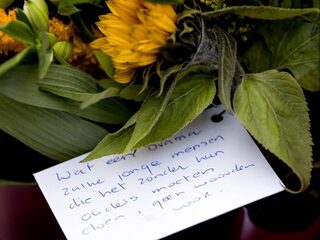 Wat een drama
zulke jonge mensen
die het zonder hun
ouders moeten
doen, geen woorden
voor.